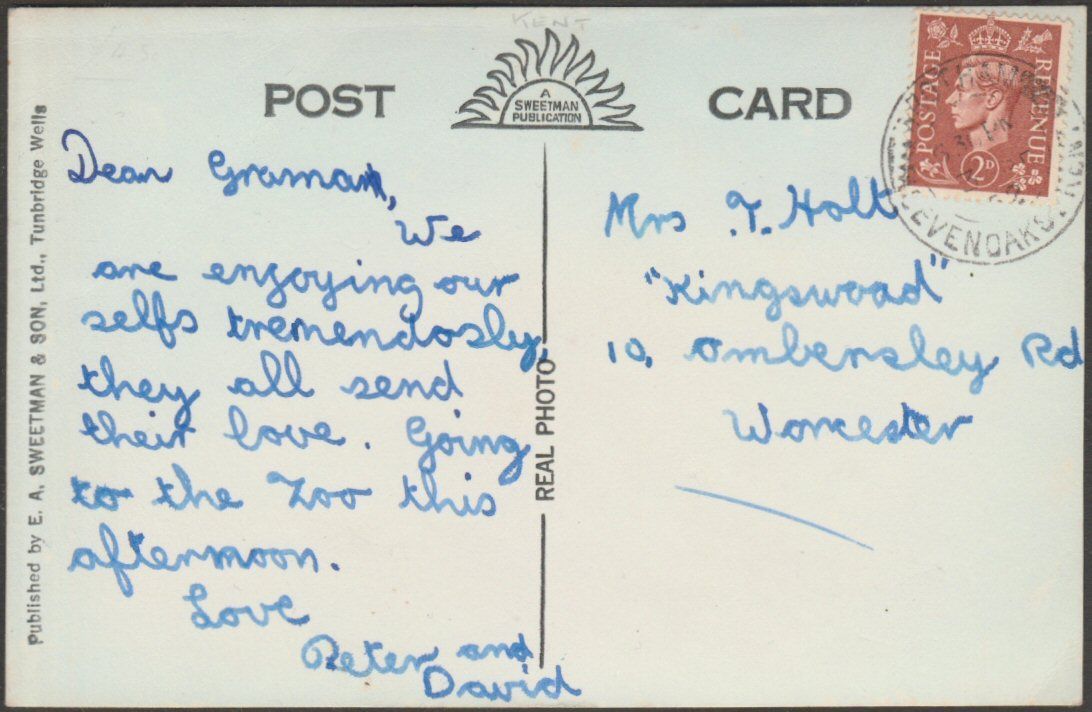 KENT
POST CARD
A
SWEETMAN
PUBLICATION
POSTAGE
REVENUE
2D
SEVENOAKS, KENT
Dear Graman,
We
are enjoying our
selfs tremendosly
they all send
their love. Going
to the Zoo this
afternoon.
Love
Peter and
David
Mrs T. Holt
"Kingswood"
10, Ombersley Rd
Worcester
REAL PHOTO
Published by E. A. SWEETMAN & SON, Ltd., Tunbridge Wells